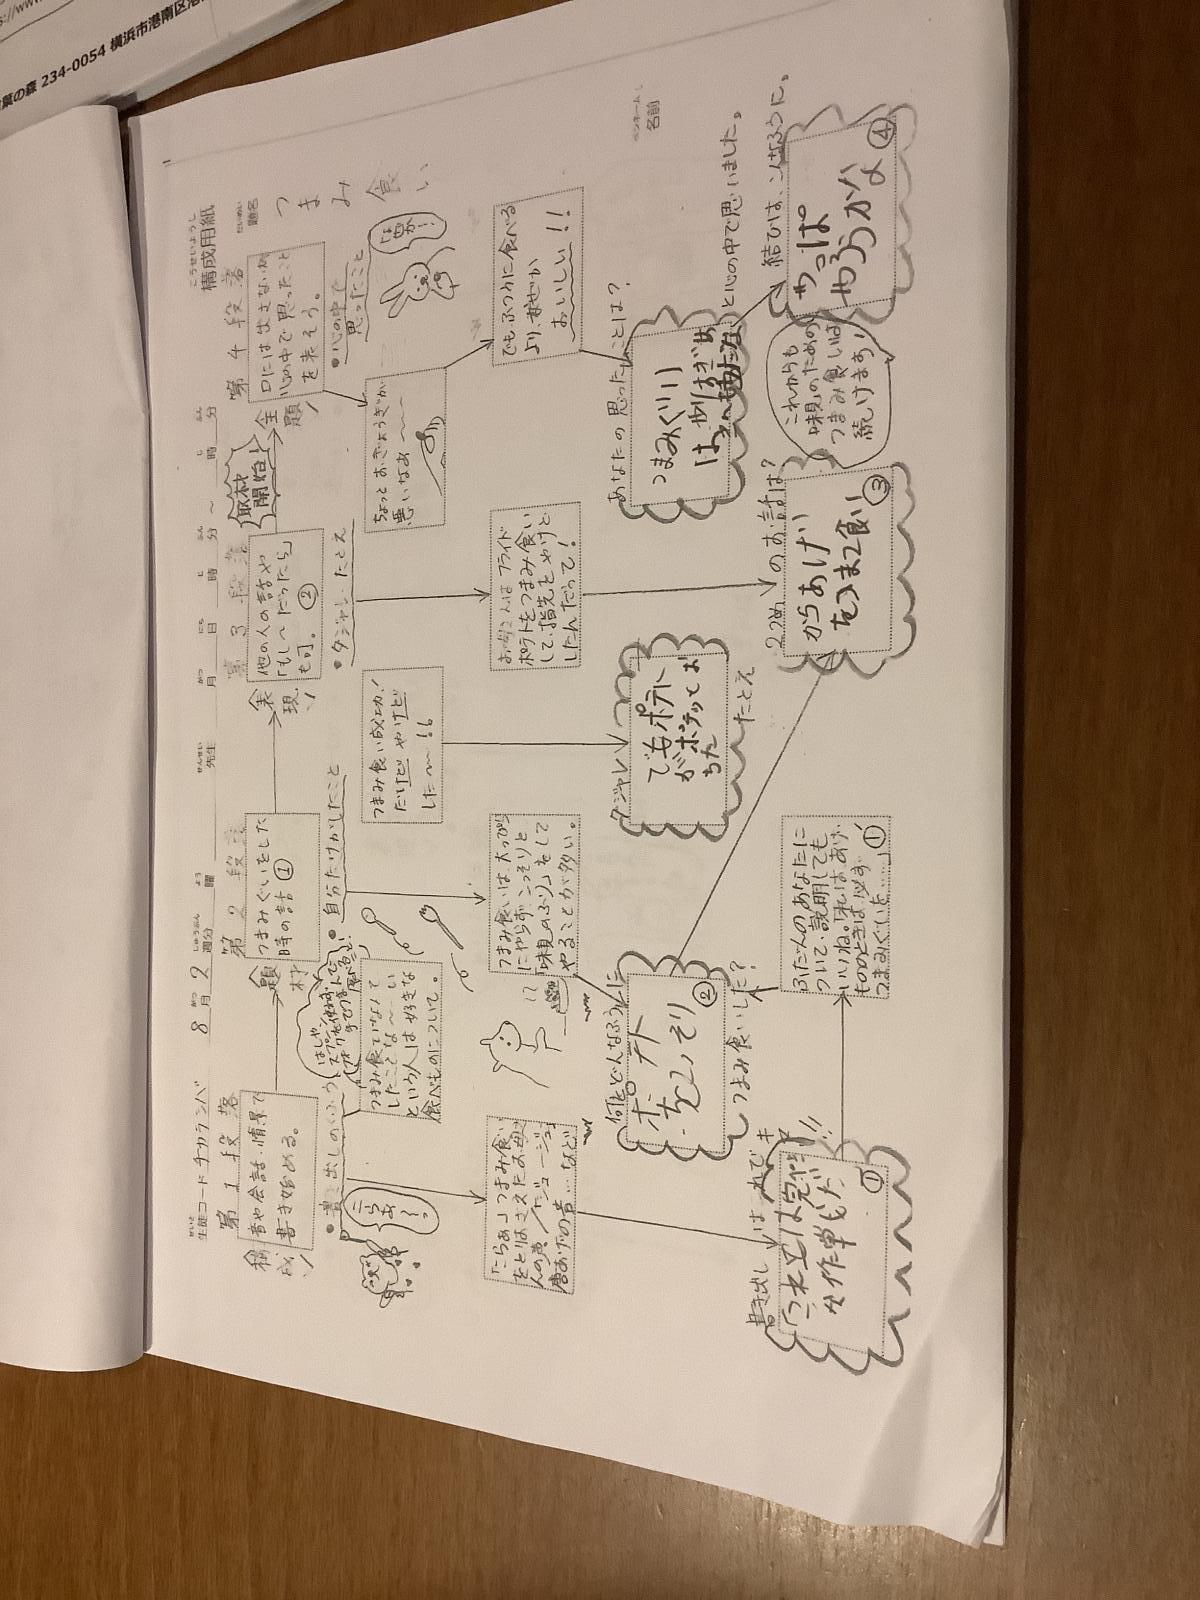 葉の森 234-0054 横浜市港南区港
構成用紙
こうせいようし
題名
だいめい
つまみ食い
名前
ペンネーム
生徒コード チカランバ
8月2週分
曜
先生
月 日 時 分 ～ 時 分
第1段落
第2段落
第3段落
第4段落
構成
音や会話、情景で
書き始める。
題材
つまみぐいをした
時の話①
表現
他の人の話や
「もし～だったら」
も可。②
取材
開始!
主題
口には出さないが
心の中で思ったこと
を表そう。
●書き出しのくふう
●自分だけがしたこと
●ダジャレ・たとえ
●心の中で
思ったこと
こら
あ!
はしや
スプーン
つまみ食いなんて
したことな～い
という人は好きな
食べものについて。
つまみ食い成功!
だけど やけど
した～!!
ちょっとおぎょうぎが
悪いなあ～～～
「こらあ」つまみ食い
をとりおさえたお母さ
んの声/ジュージュー
唐あげの音…など
つまみ食いは、大っぴら
にやらず、こっそりと
「味見のふり」をして
やることが多い。
お母さんはフライド
ポテトをつまみ食い
して、指先をやけど
したんだって!
でも、ふつうに食べる
より、なぜか
おいしい!!
何をどんなふうに
ポテト
をこっそり
②
つまみ食いした?
ダジャレ
でもポテト
がポテッとお
ちた
たとえ
あなたの思ったことは?
つまみぐい
はやりすぎ
と心の中で思いました。
書き出しはこれでキマリ!!
作戦だ
①
ふだんのあなたに
ついて説明しても
いいね。「私は、あげ
もののときは、必ず
つまみぐいを……」①´
2つめのお話は?
からあげ
をつまみ食い
③
これからも
味見のための
つまみ食いは
続けます!
結びは、こんなふうに。
やっぱ
やろうかな
④